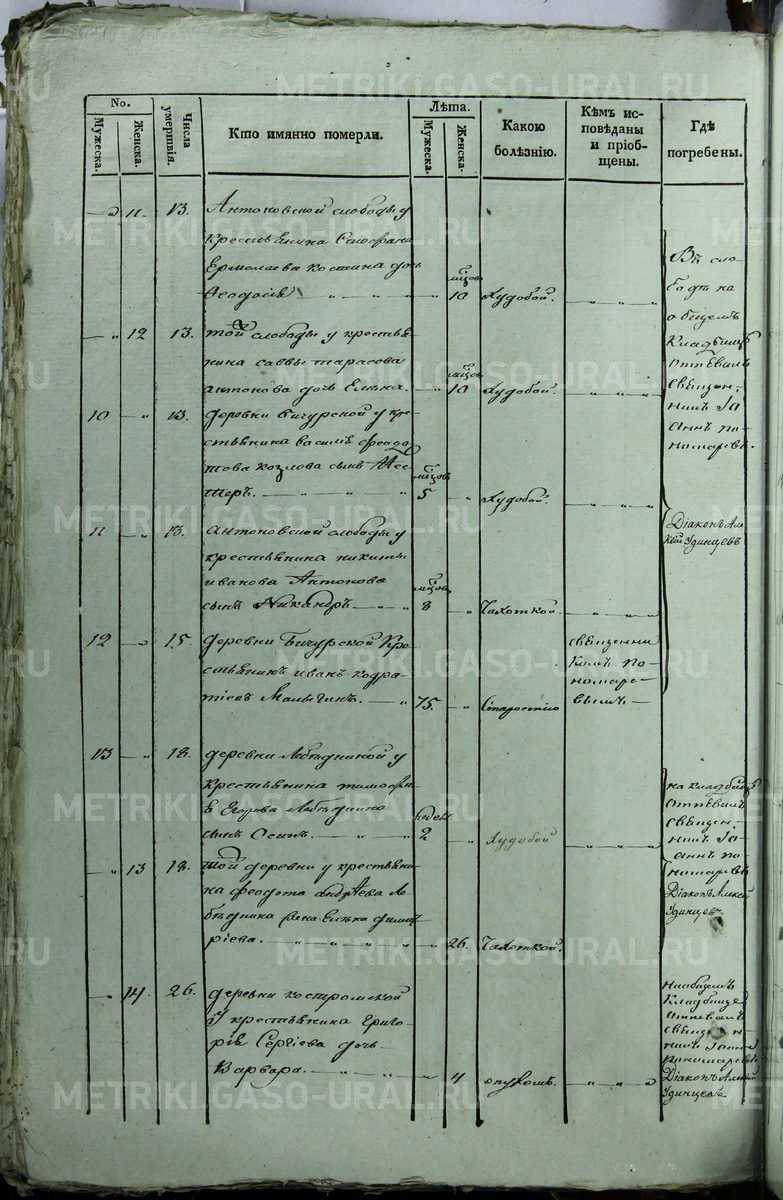 METRIKI.GASO-URAL.RU
No.
Мужеска.
Женска.
Числа умертвія.
Кто имянно померли.
Лѣта.
Мужеска.
Женска.
Какою болѣзнію.
Кѣмъ исповѣданы и пріобщены.
Гдѣ погребены.
11. 13. Антоновской слободы у
крестьянина Стефана
Ермолаева Костина дочь
Ѳеодосія 10 мѣсцовъ Худобой.
Въ сло-
бодѣ на
общемъ
кладбищѣ
отпѣвалъ
священ-
никъ Іо-
аннъ По-
номаревъ.
Діаконъ Але-
ксій Удинцевъ
12 13. той слободы у крестья-
нина Саввы Тарасова
Антонова дочь Елена. 10 мѣсцовъ Худобой.
10 13. деревни Бичурской у кре-
стьянина Василья Ѳеодо-
това Козлова сынъ Нес-
теръ. 5 мѣсцовъ Худобой.
11 13. Антоновской слободы у
крестьянина Никиты
Иванова Антонова
сынъ Никандръ 8 мѣсцовъ Чахоткой.
12 15. деревни Бичурской Кре-
стьянинъ Иванъ Кодра-
тіевъ Малыгинъ. 75. Старостію
священни
комъ По-
номаре-
вымъ
13 18. деревни Лебедкиной у
крестьянина Тимофе-
я Егорова Лебедкина
сынъ Осипъ. 2 недели Худобой
на кладбищѣ
отпѣвалъ
священ-
никъ Іо-
аннъ По-
номаревъ
Діаконъ Алексей
Удинцевъ.
13 18. той деревни у крестьяни-
на Ѳеодота Андреева Ле-
бедкина жена Елена Димит-
ріева. 26. Чахоткой.
14. 26. деревни Костромской
У крестьянина Григо-
рія Сергіева дочь
Варвара. 4 опухомъ.
на общемъ
кладбище
отпевалъ
священ-
никъ Іоаннъ
Пономаревъ
Діаконъ Алексей
Удинцевъ.